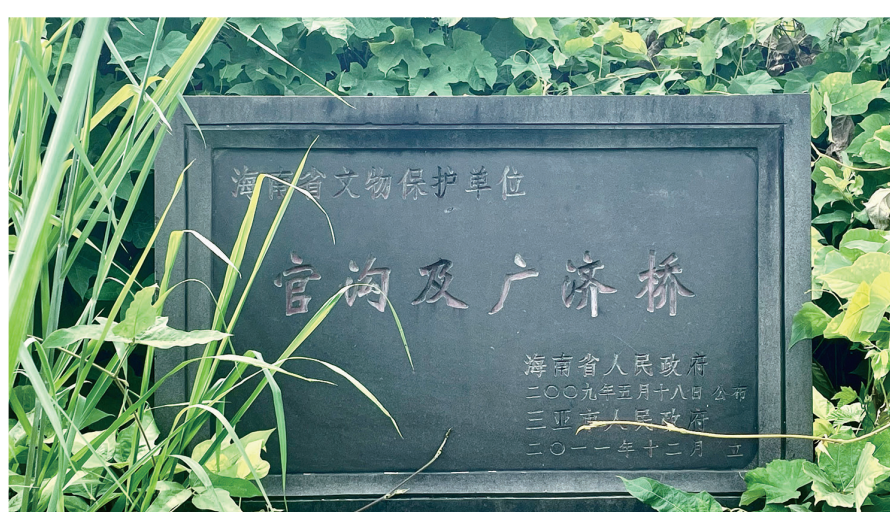 海南省文物保护单位
官沟及广济桥
海南省人民政府
二〇〇九年五月十八日 公布
三亚市人民政府
二〇一一年十二月 立